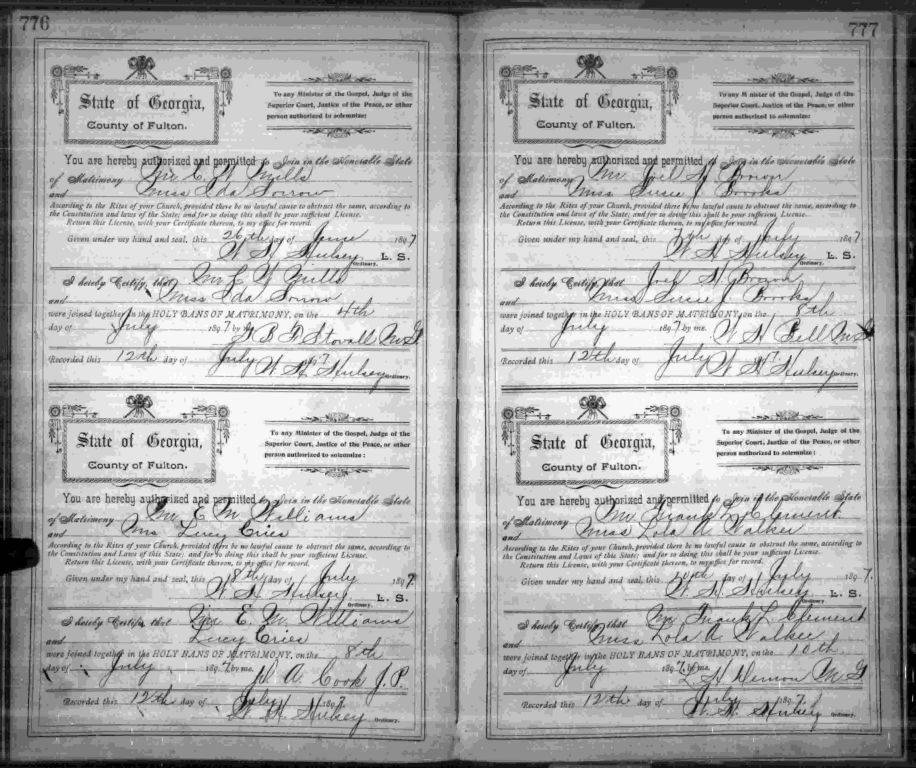 776
State of Georgia,
County of Fulton.
To any Minister of the Gospel, Judge of the
Superior Court, Justice of the Peace, or other
person authorized to solemnize:
You are hereby authorized and permitted to Join in the Honorable State
of Matrimony Mr C Y Mills
and Miss Ida Sorrow
According to the Rites of your Church, provided there be no lawful cause to obstruct the same, according to
the Constitution and laws of the State; and for so doing this shall be your sufficient License.
Return this License, with your Certificate thereon, to my office for record.
Given under my hand and seal, this 26th day of June 1897
W H Hulsey L. S.
Ordinary.
I hereby Certify, that Mr C Y Mills
and Miss Ida Sorrow
were joined together in the HOLY BANS OF MATRIMONY, on the 4th
day of July 1897 by me. B F Stovall M G
Recorded this 12th day of July 1897
W H Hulsey Ordinary.
State of Georgia,
County of Fulton.
To any Minister of the Gospel, Judge of the
Superior Court, Justice of the Peace, or other
person authorized to solemnize:
You are hereby authorized and permitted to Join in the Honorable State
of Matrimony Mr E M Williams
and Mrs Lucy Cries
According to the Rites of your Church, provided there be no lawful cause to obstruct the same, according to
the Constitution and Laws of this State; and for so doing this shall be your sufficient License.
Return this License, with your Certificate thereon, to my office for record.
Given under my hand and seal, this 8th day of July 1897
W H Hulsey L. S.
Ordinary.
I hereby Certify, that Mr E. M. Williams
and Lucy Cries
were joined together in the HOLY BANS OF MATRIMONY, on the 8th
day of July 1897 by me. A. Cook J. P.
Recorded this 12th day of July 1897
W H Hulsey Ordinary.
777
State of Georgia,
County of Fulton.
To any Minister of the Gospel, Judge of the
Superior Court, Justice of the Peace, or other
person authorized to solemnize:
You are hereby authorized and permitted to Join in the Honorable State
of Matrimony Mr Joel H Brown
and Miss Susie J Brooks
According to the Rites of your Church, provided there be no lawful cause to obstruct the same, according to
the Constitution and laws of the State; and for so doing this shall be your sufficient License.
Return this License, with your Certificate thereon, to my office for record.
Given under my hand and seal, this 7th day of July 1897
W H Hulsey L. S.
Ordinary.
I hereby Certify, that Joel H Brown
and Miss Susie J Brooks
were joined together in the HOLY BANS OF MATRIMONY, on the 8th
day of July 1897 by me. W H Bell M G
Recorded this 12th day of July 1897
W H Hulsey Ordinary.
State of Georgia,
County of Fulton.
To any Minister of the Gospel, Judge of the
Superior Court, Justice of the Peace, or other
person authorized to solemnize:
You are hereby authorized and permitted to Join in the Honorable State
of Matrimony Mr Frank L Clement
and Miss Lola A Walker
According to the Rites of your Church, provided there be no lawful cause to obstruct the same, according to
the Constitution and Laws of this State; and for so doing this shall be your sufficient License.
Return this License, with your Certificate thereon, to my office for record.
Given under my hand and seal, this 10th day of July 1897.
W H Hulsey L. S.
Ordinary.
I hereby Certify, that Mr Frank L Clement
and Miss Lola A Walker
were joined together in the HOLY BANS OF MATRIMONY, on the 10th
day of July 1897 by me. M G
Recorded this 12th day of July 1897
W H Hulsey Ordinary.